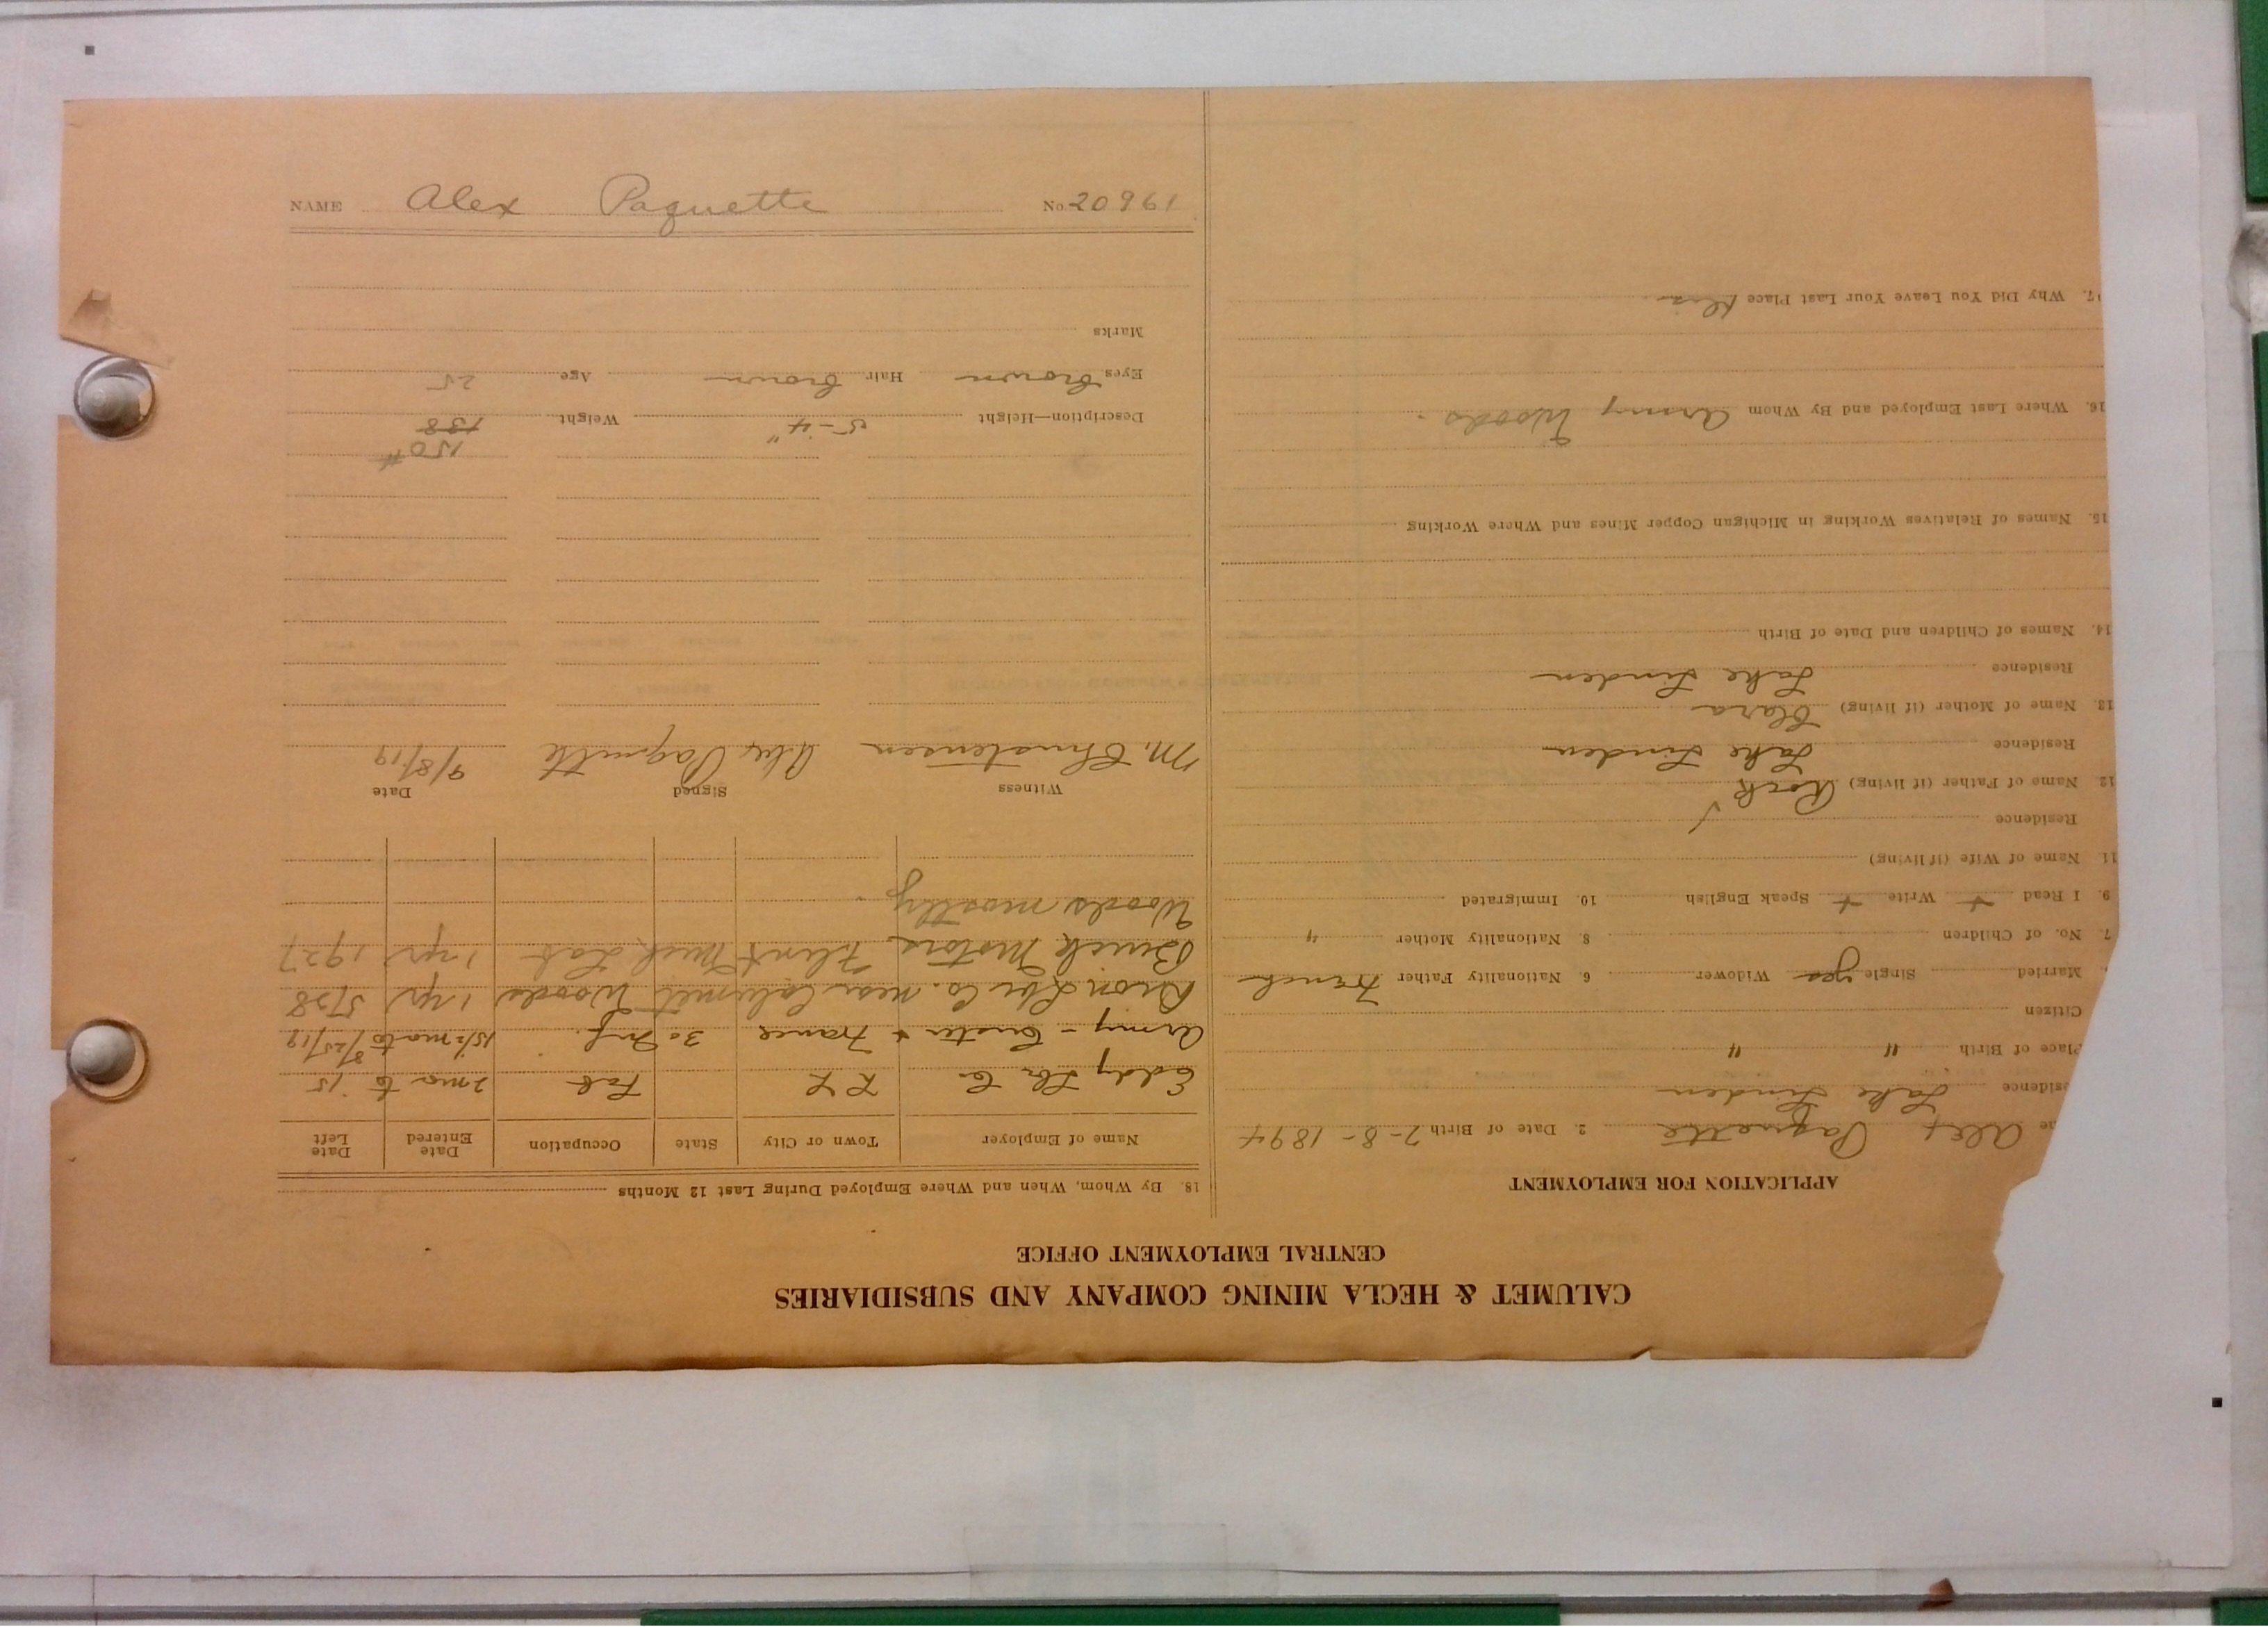 CALUMET & HECLA MINING COMPANY AND SUBSIDIARIES
CENTRAL EMPLOYMENT OFFICE
APPLICATION FOR EMPLOYMENT
me Alex Paquette 2. Date of Birth 7-8-1894
esidence Lake Linden
Place of Birth " "
Citizen
Married Single yes Widower 6. Nationality Father French
7. No. of Children 8. Nationality Mother "
9. I Read + Write + Speak English 10. Immigrated
11. Name of Wife (if living)
Residence
12. Name of Father (if living) Rock
Residence Lake Linden
13. Name of Mother (if living) Clara
Residence Lake Linden
14. Names of Children and Date of Birth
15. Names of Relatives Working in Michigan Copper Mines and Where Working
16. Where Last Employed and By Whom Army Woods.
17. Why Did You Leave Your Last Place
18. By Whom, When and Where Employed During Last 12 Months
Name of Employer Town or City State Occupation Date Entered Date Left
Eddy Lbr Co LL Lab 2 mo to '15
Army - Custer + France 30 Inf. 15½ mo to 8/25/19
Lbr Co. near Calumet Woods 1 yr 5/28
Buick Motors Flint Mich Lab 1 yr 1927
Woods mostly.
Witness Signed Date
M. Christensen Alex Paquette 9/8/19
150#
Description—Height 5-4" Weight 138
Eyes brown Hair brown Age 25
Marks
NAME Alex Paquette No. 20961